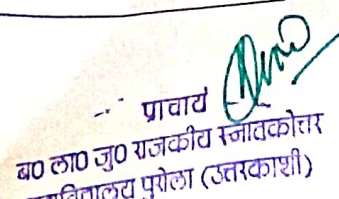 प्राचार्य
ब० ला० जु० राजकीय स्नातकोत्तर
महाविद्यालय पुरोला (उत्तरकाशी)